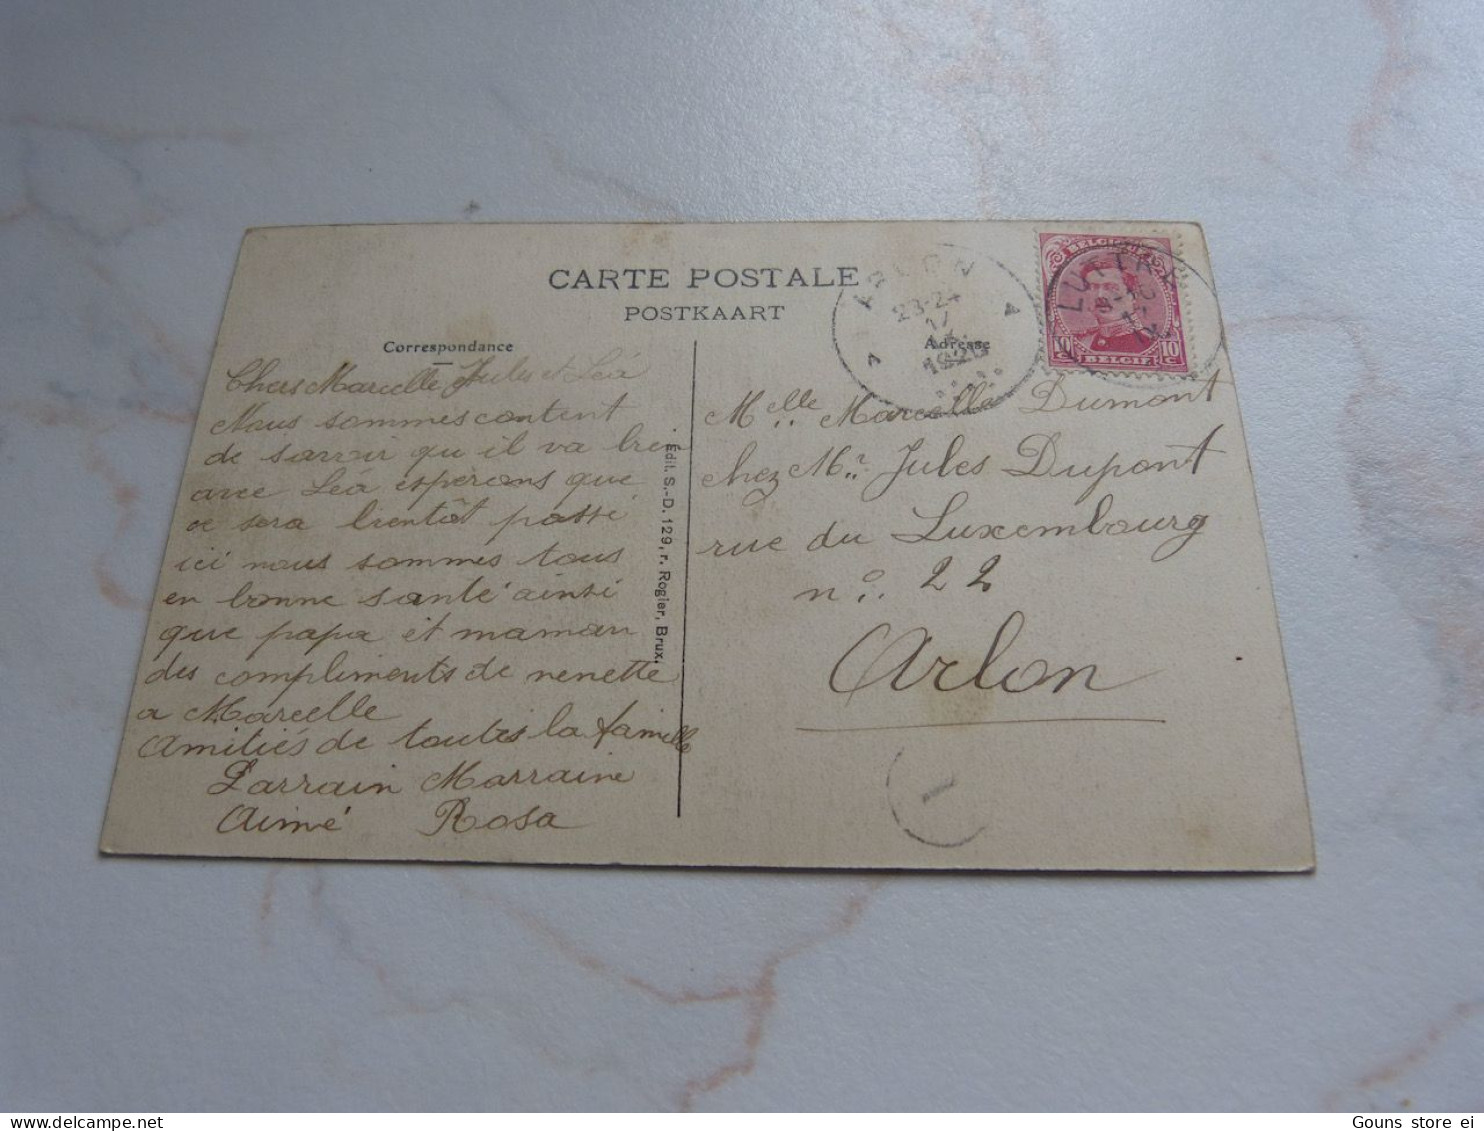 CARTE POSTALE
POSTKAART
Correspondance
Chers Marcelle Jules et Léa
Nous sommes content
de savoir qu il va bien
avec Léa esperons que
ce sera bientôt passé
ici nous sommes tous
en bonne santé ainsi
que papa et maman
des compliments de nenette
a Marcelle
Amitiés de toutes la famille
Parrain Marraine
Aimé Rosa
Édit. S.-D. 129, r. Rogier, Brux.
ARLON
23-24
17
1920
Adresse
BELGIQUE
10 c
10 c
BELGIE
LUTTRE
Melle Marcelle Dumont
chez Mr. Jules Dupont
rue du Luxembourg
no. 22
Arlon
1
Gouns store ei